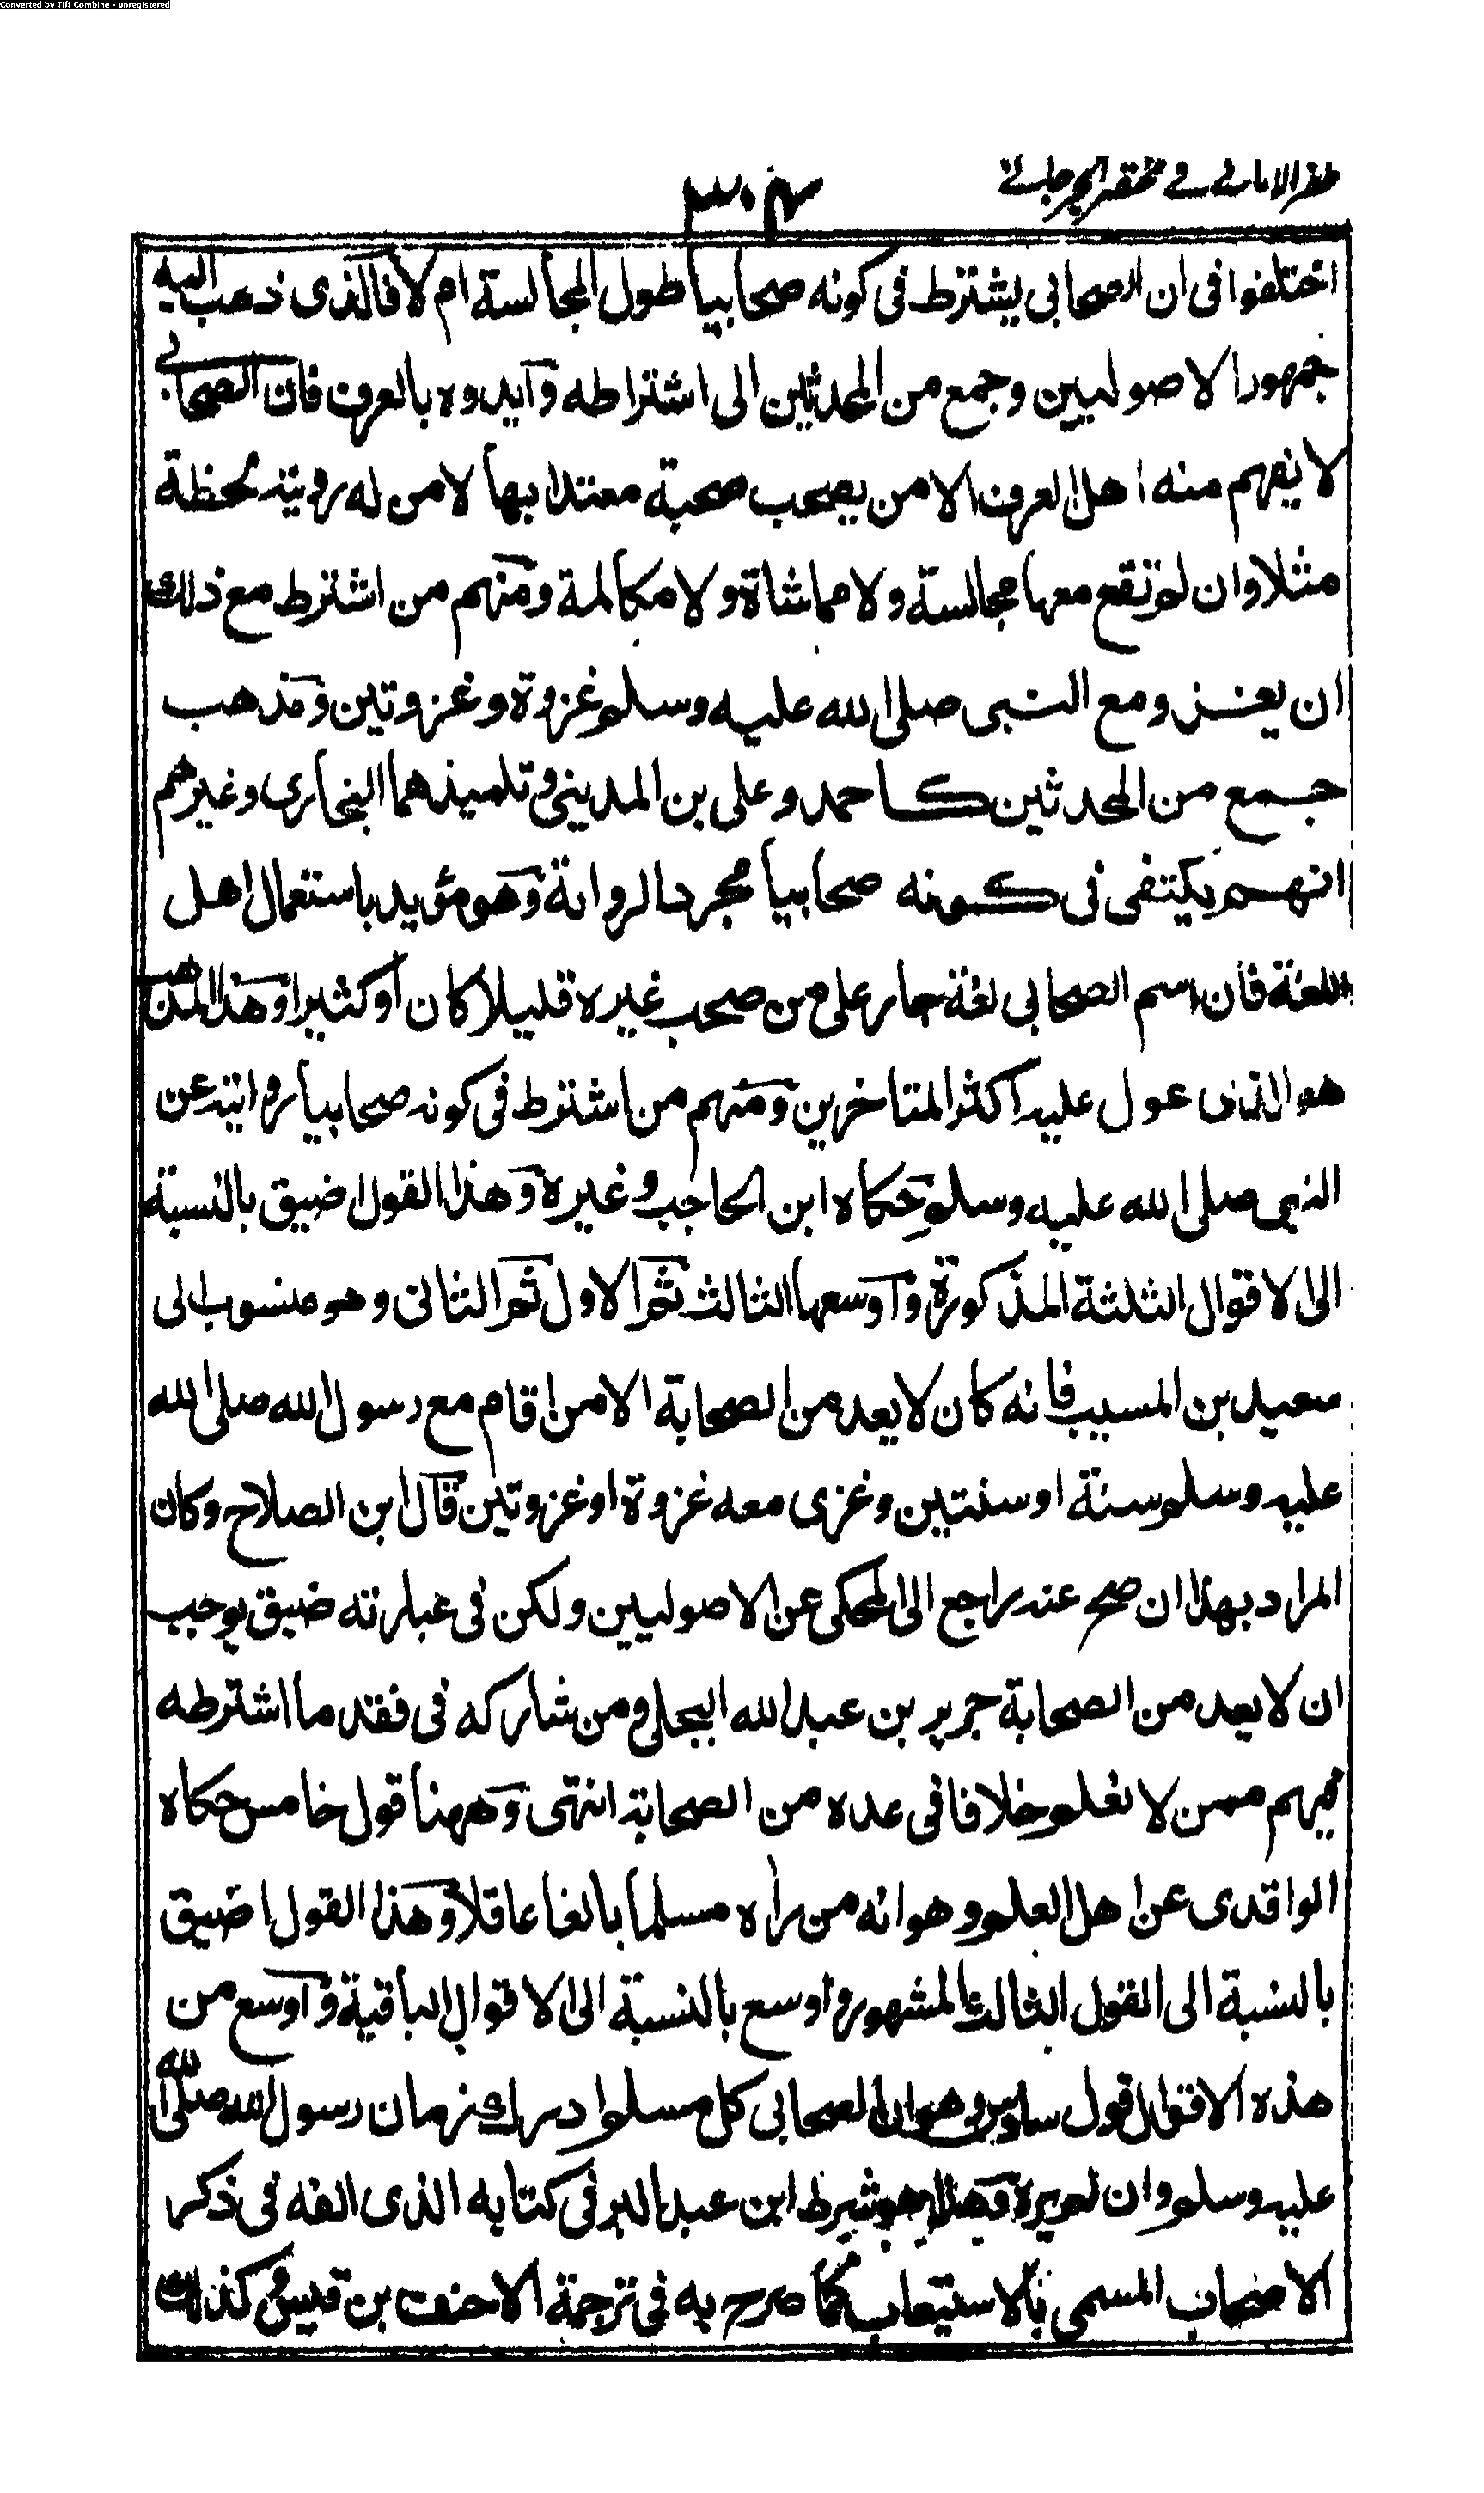 Converted by Tiff Combine - unregistered
ظفر الامانی فی مختصر الجرجانی
٣٠٤
اختلفوا فى ان الصحابى يشترط فى كونه صحابيا طول المجالسة ام لا فالذى ذهب اليه
جمهور الاصوليين وجمع من المحدثين الى اشتراطه وايدوه بالعرف فان الصحابى
لا يفهم منه اهل العرف الا من يصحب صحبة معتدا بها لا من له روية لحظة
مثلا وان لم تقع معها مجالسة ولا مماشاة ولا مكالمة ومنهم من اشترط مع ذلك
ان يغزو مع النبى صلى الله عليه وسلم غزوة وغزوتين ومذهب
جمع من المحدثين كاحمد وعلى بن المدينى وتلميذهما البخارى وغيرهم
انهم يكتفى فى كونه صحابيا مجرد الرواية وهو مؤيد باستعمال اهل
اللغة فان اسم الصحابى لغة جار على من صحب غيره قليلا كان او كثيرا وهذا المذهب
هو الذى عول عليه اكثر المتاخرين ومنهم من اشترط فى كونه صحابيا روايته عن
النبى صلى الله عليه وسلم حكاه ابن الحاجب وغيره وهذا القول اضيق بالنسبة
الى الاقوال الثلثة المذكورة واوسعها الثالث ثم الاول ثم الثانى وهو منسوب الى
سعيد بن المسيب فانه كان لا يعد من الصحابة الا من اقام مع رسول الله صلى الله
عليه وسلم سنة او سنتين وغزى معه غزوة او غزوتين قال ابن الصلاح وكان
المراد بهذا ان صح عنه راجع الى المحكى عن الاصوليين ولكن فى عبارته ضيق يوجب
ان لا يعد من الصحابة جرير بن عبد الله البجلى ومن شاركه فى فقد ما اشترطه
فيهم ممن لا نعلم خلافا فى عده من الصحابة انتهى وههنا قول خامس حكاه
الواقدى عن اهل العلم وهو انه من رأه مسلما بالغا عاقلا وهذا القول اضيق
بالنسبة الى القول الثالث المشهور واوسع بالنسبة الى الاقوال الباقية واوسع من
هذه الاقوال قول سادس وهو ان الصحابى كل مسلم ادرك زمان رسول الله صلى الله
عليه وسلم وان لم يره وهذا هو شرط ابن عبد البر فى كتابه الذى الفه فى ذكر
الاصحاب المسمى بالاستيعاب كما صرح به فى ترجمة الاحنف بن قيس وكذلك